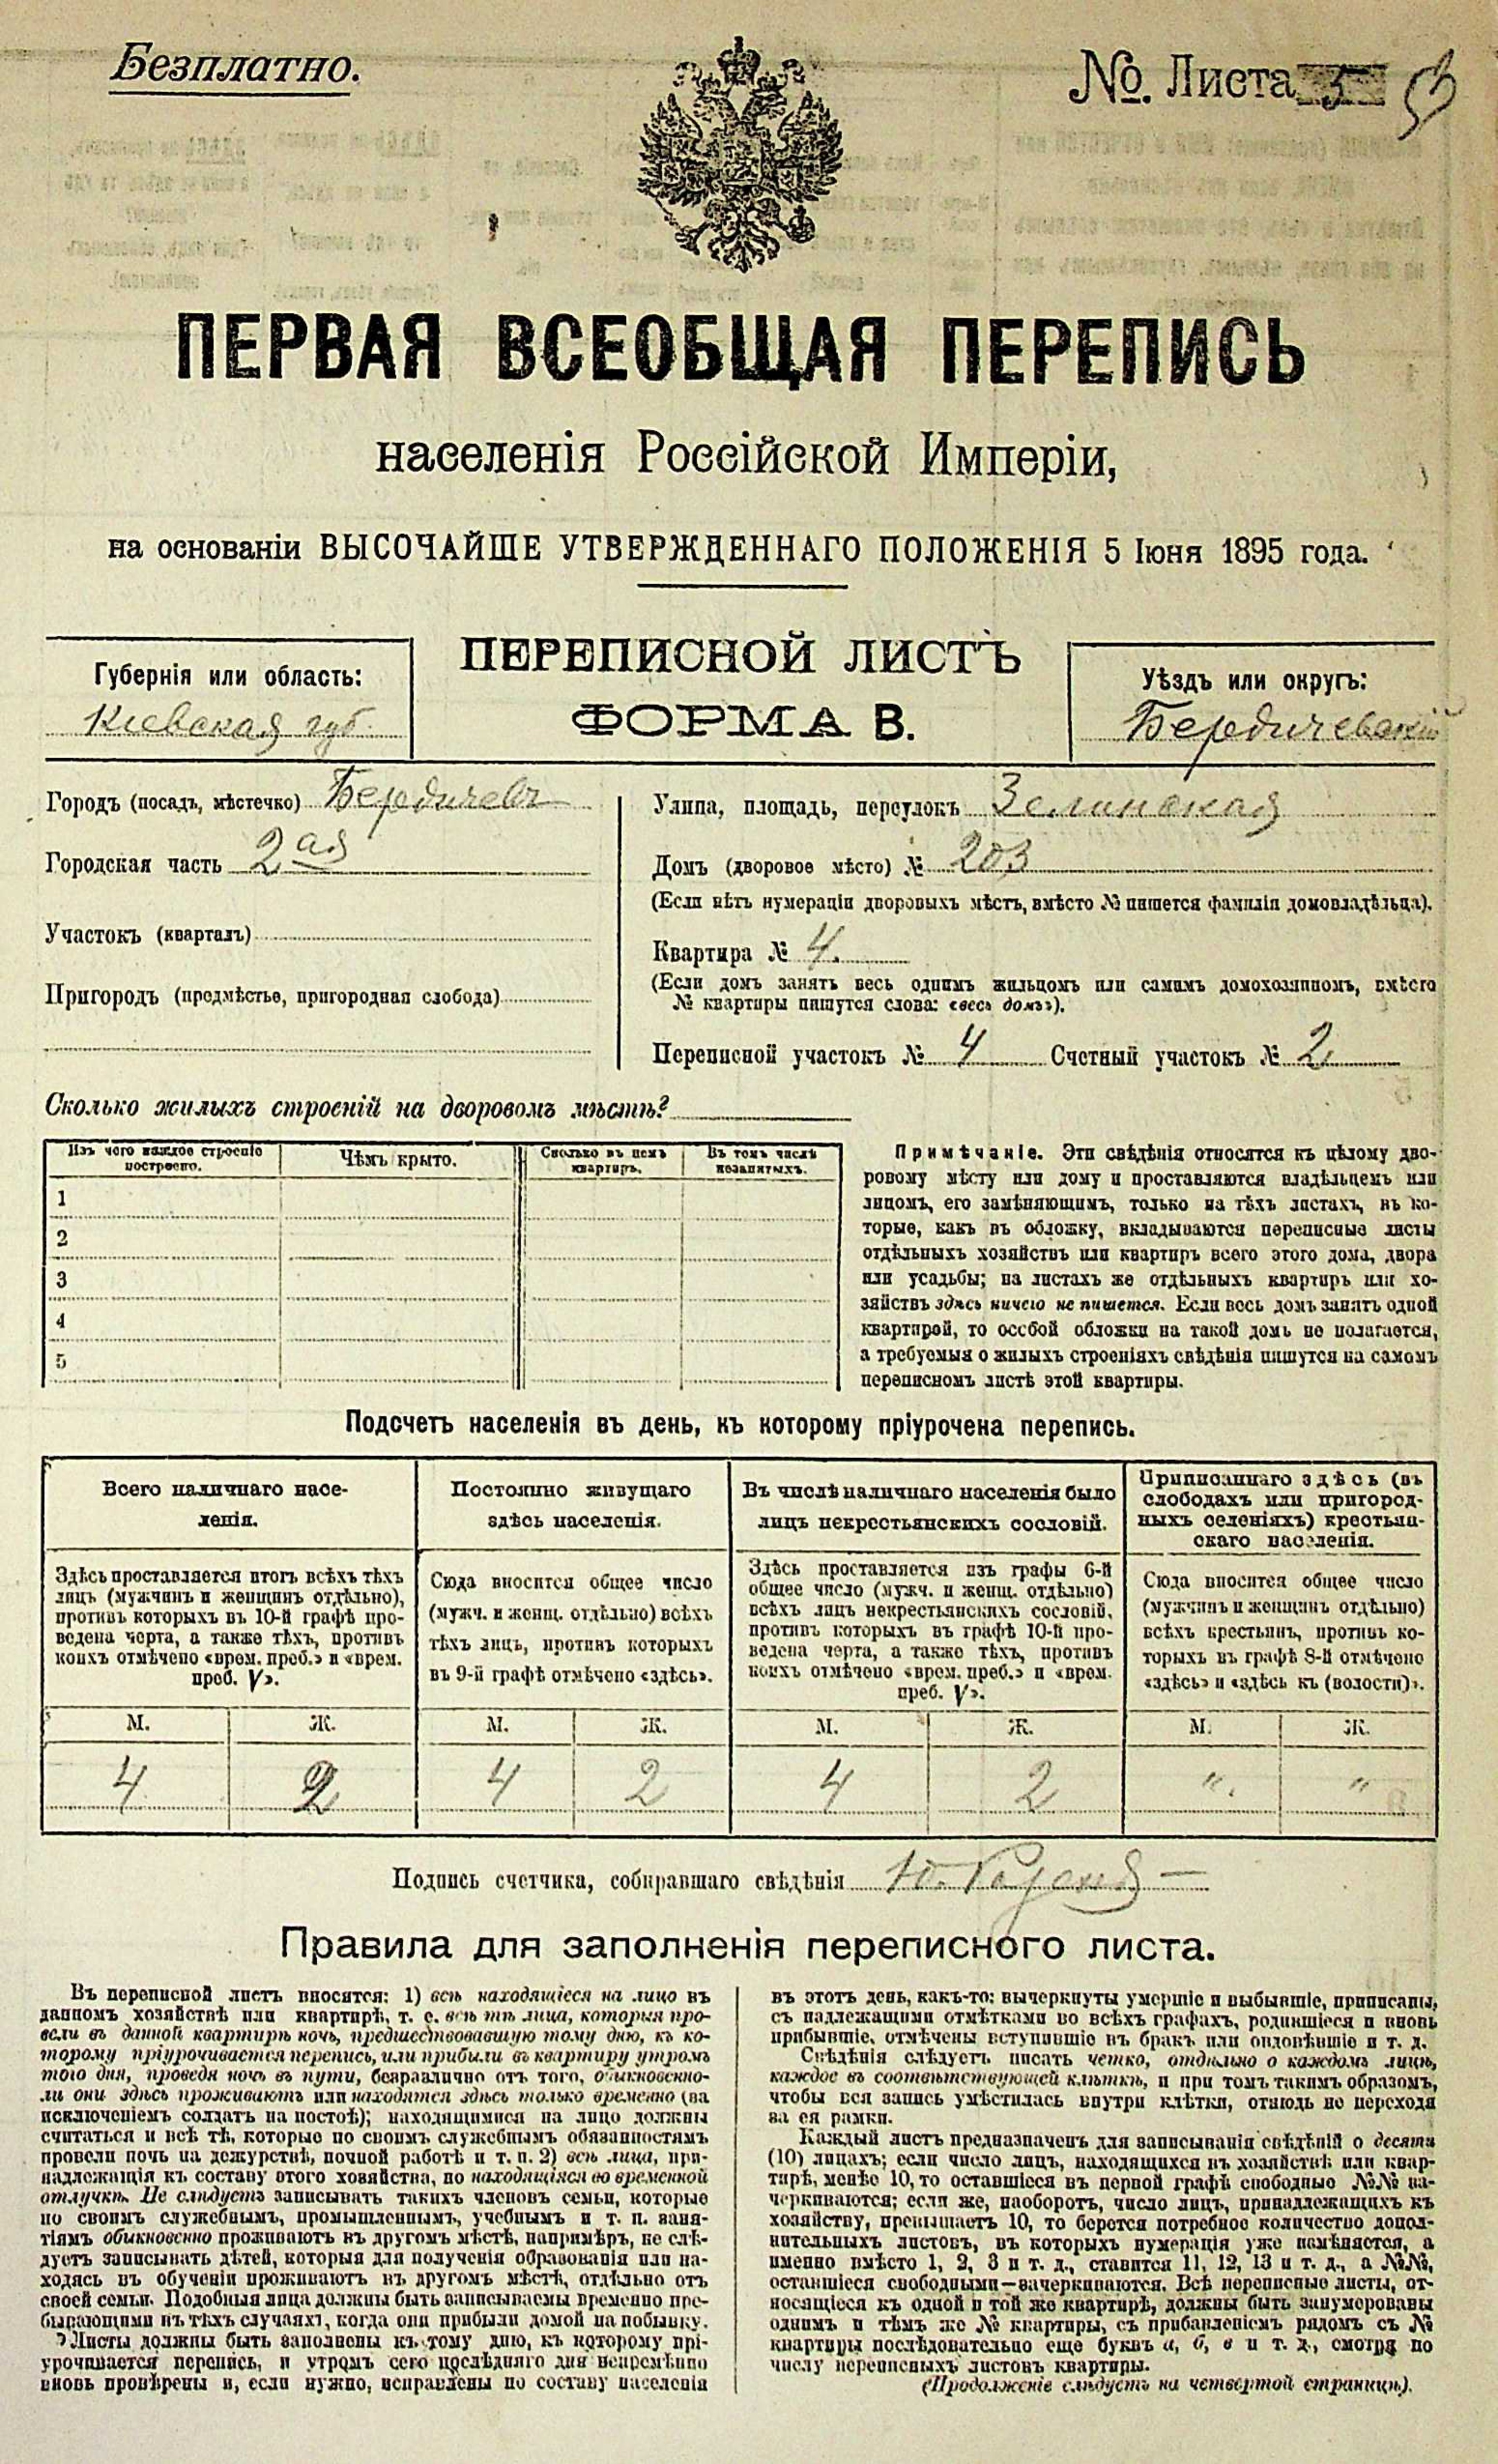 Безплатно.
№. Листа
ПЕРВАЯ ВСЕОБЩАЯ ПЕРЕПИСЬ
населенія Россійской Имперіи,
на основаніи ВЫСОЧАЙШЕ УТВЕРЖДЕННАГО ПОЛОЖЕНІЯ 5 Іюня 1895 года.
ПЕРЕПИСНОЙ ЛИСТЪ
ФОРМА В.
Губернія или область:
Кіевская губ.
Уѣздъ или округъ:
Бердичевскій
Городъ (посадъ, мѣстечко) Бердичевъ
Городская часть 2ая
Участокъ (кварталъ)
Пригородъ (предмѣстье, пригородная слобода)
Улица, площадь, переулокъ Зелинская
Домъ (дворовое мѣсто) № 203
(Если нѣтъ нумераціи дворовыхъ мѣстъ, вмѣсто № пишется фамилія домовладѣльца).
Квартира № 4.
(Если домъ занятъ весь однимъ жильцомъ или самимъ домохозяиномъ, вмѣсто
№ квартиры пишутся слова: «весь домъ»).
Переписной участокъ № 4 Счетный участокъ № 2
Сколько жилыхъ строеній на дворовомъ мѣстѣ?
Изъ чего каждое строеніе
построено.
Чѣмъ крыто.
Сколько въ немъ
квартиръ.
Въ томъ числѣ
незанятыхъ.
1
2
3
4
5
Примѣчаніе. Эти свѣдѣнія относятся къ цѣлому дво-
ровому мѣсту или дому и проставляются владѣльцемъ или
лицомъ, его замѣняющимъ, только на тѣхъ листахъ, въ ко-
торые, какъ въ обложку, вкладываются переписные листы
отдѣльныхъ хозяйствъ или квартиръ всего этого дома, двора
или усадьбы; на листахъ же отдѣльныхъ квартиръ или хо-
зяйствъ здѣсь ничего не пишется. Если весь домъ занятъ одной
квартирой, то особой обложки на такой домъ не полагается,
а требуемыя о жилыхъ строеніяхъ свѣдѣнія пишутся на самомъ
переписномъ листѣ этой квартиры.
Подсчетъ населенія въ день, къ которому пріурочена перепись.
Всего наличнаго насе-
ленія.
Здѣсь проставляется итогъ всѣхъ тѣхъ
лицъ (мужчинъ и женщинъ отдѣльно),
противъ которыхъ въ 10-й графѣ про-
ведена черта, а также тѣхъ, противъ
коихъ отмѣчено «врем. преб.» и «врем.
преб. V».
М. Ж.
4 2
Постоянно живущаго
здѣсь населенія.
Сюда вносится общее число
(мужч. и женщ. отдѣльно) всѣхъ
тѣхъ лицъ, противъ которыхъ
въ 9-й графѣ отмѣчено «здѣсь».
М. Ж.
4 2
Въ числѣ наличнаго населенія было
лицъ некрестьянскихъ сословій.
Здѣсь проставляется изъ графы 6-й
общее число (мужч. и женщ. отдѣльно)
всѣхъ лицъ некрестьянскихъ сословій,
противъ которыхъ въ графѣ 10-й про-
ведена черта, а также тѣхъ, противъ
коихъ отмѣчено «врем. преб.» и «врем.
преб. V».
М. Ж.
4 2
Приписаннаго здѣсь (въ
слободахъ или пригород-
ныхъ селеніяхъ) крестьян-
скаго населенія.
Сюда вносится общее число
(мужчинъ и женщинъ отдѣльно)
всѣхъ крестьянъ, противъ ко-
торыхъ въ графѣ 8-й отмѣчено
«здѣсь» и «здѣсь къ (волости)».
М. Ж.
" "
Подпись счетчика, собиравшаго свѣдѣнія
Правила для заполненія переписного листа.
Въ переписной листъ вносятся: 1) всѣ находящіеся на лицо въ
данномъ хозяйствѣ или квартирѣ, т. е. всѣ тѣ лица, которыя про-
вели въ данной квартирѣ ночь, предшествовавшую тому дню, къ ко-
торому пріурочивается перепись, или прибыли въ квартиру утромъ
того дня, проведя ночь въ пути, безразлично отъ того, обыкновенно-
ли они здѣсь проживаютъ или находятся здѣсь только временно (за
исключеніемъ солдатъ на постоѣ); находящимися на лицо должны
считаться и всѣ тѣ, которые по своимъ служебнымъ обязанностямъ
провели ночь на дежурствѣ, ночной работѣ и т. п. 2) всѣ лица, при-
надлежащія къ составу этого хозяйства, но находящіяся во временной
отлучкѣ. Не слѣдуетъ записывать такихъ членовъ семьи, которые
по своимъ служебнымъ, промышленнымъ, учебнымъ и т. п. заня-
тіямъ обыкновенно проживаютъ въ другомъ мѣстѣ, напримѣръ, не слѣ-
дуетъ записывать дѣтей, которыя для полученія образованія или на-
ходясь въ обученіи проживаютъ въ другомъ мѣстѣ, отдѣльно отъ
своей семьи. Подобныя лица должны быть записываемы временно пре-
бывающими въ тѣхъ случаяхъ, когда они прибыли домой на побывку.
Листы должны быть заполнены къ тому дню, къ которому прі-
урочивается перепись, и утромъ сего послѣдняго дня непремѣнно
вновь провѣрены и, если нужно, исправлены по составу населенія
въ этотъ день, какъ-то: вычеркнуты умершіе и выбывшіе, приписаны,
съ надлежащими отмѣтками во всѣхъ графахъ, родившіеся и вновь
прибывшіе, отмѣчены вступившіе въ бракъ или овдовѣвшіе и т. д.
Свѣдѣнія слѣдуетъ писать четко, отдѣльно о каждомъ лицѣ,
каждое въ соотвѣтствующей клѣткѣ, и при томъ такимъ образомъ,
чтобы вся запись умѣстилась внутри клѣтки, отнюдь не переходя
за ея рамки.
Каждый листъ предназначенъ для записыванія свѣдѣній о десяти
(10) лицахъ; если число лицъ, находящихся въ хозяйствѣ или квар-
тирѣ, менѣе 10, то оставшіеся въ первой графѣ свободные №№ за-
черкиваются; если же, наоборотъ, число лицъ, принадлежащихъ къ
хозяйству, превышаетъ 10, то берется потребное количество допол-
нительныхъ листовъ, въ которыхъ нумерація уже измѣняется, а
именно вмѣсто 1, 2, 3 и т. д., ставится 11, 12, 13 и т. д., а №№,
оставшіеся свободными—зачеркиваются. Всѣ переписные листы, от-
носящіеся къ одной и той же квартирѣ, должны быть занумерованы
однимъ и тѣмъ же № квартиры, съ прибавленіемъ рядомъ съ №
квартиры послѣдовательно еще буквъ а, б, в и т. д., смотря по
числу переписныхъ листовъ квартиры.
(Продолженіе слѣдуетъ на четвертой страницѣ).